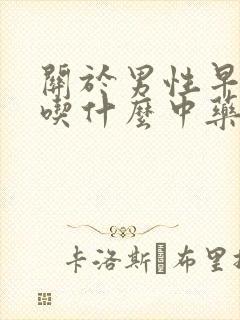 關於男性早
喫什麼中藥
卡洛斯 布里